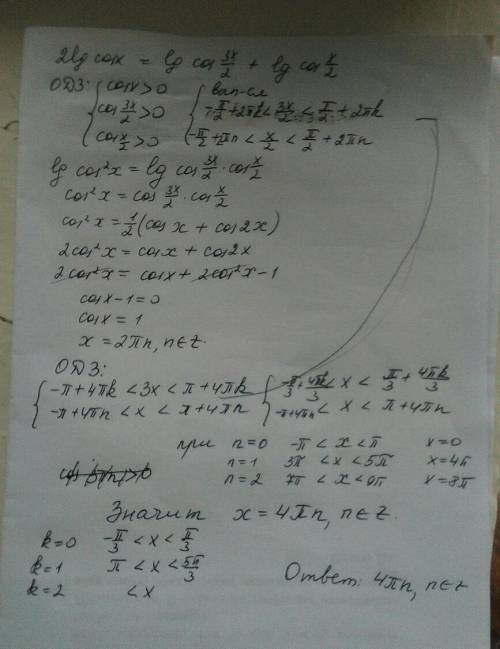 2lg cosx = lg cos 3x/2 + lg cos x/2
ОДЗ: { cosx>0 { вып-ся
cos 3x/2 >0 -π/2+2πk< 3x/2 < π/2+2πk
cos x/2 >0 -π/2+2πn < x/2 < π/2 +2πn
lg cos²x = lg cos 3x/2 · cos x/2
cos²x = cos 3x/2 · cos x/2
cos²x = 1/2 (cos x + cos 2x)
2cos²x = cosx + cos2x
2cos²x = cosx + 2cos²x-1
cosx-1=0
cosx = 1
x = 2πn, n∈Z.
ОДЗ:
{ -π+4πk <3x < π+4πk { -π/3+4πk/3 < x < π/3 + 4πk/3
-π+4πn < x < π+4πn -π+4πn < x < π+4πn
при n=0 -π < x < π x=0
n=1 3π <x < 5π x=4π
n=2 7π < x < 9π x=8π
Значит x = 4πn, n∈Z.
k=0 -π/3 < x < π/3
k=1 π < x < 5π/3
k=2 < x
Ответ: 4πn, n∈Z